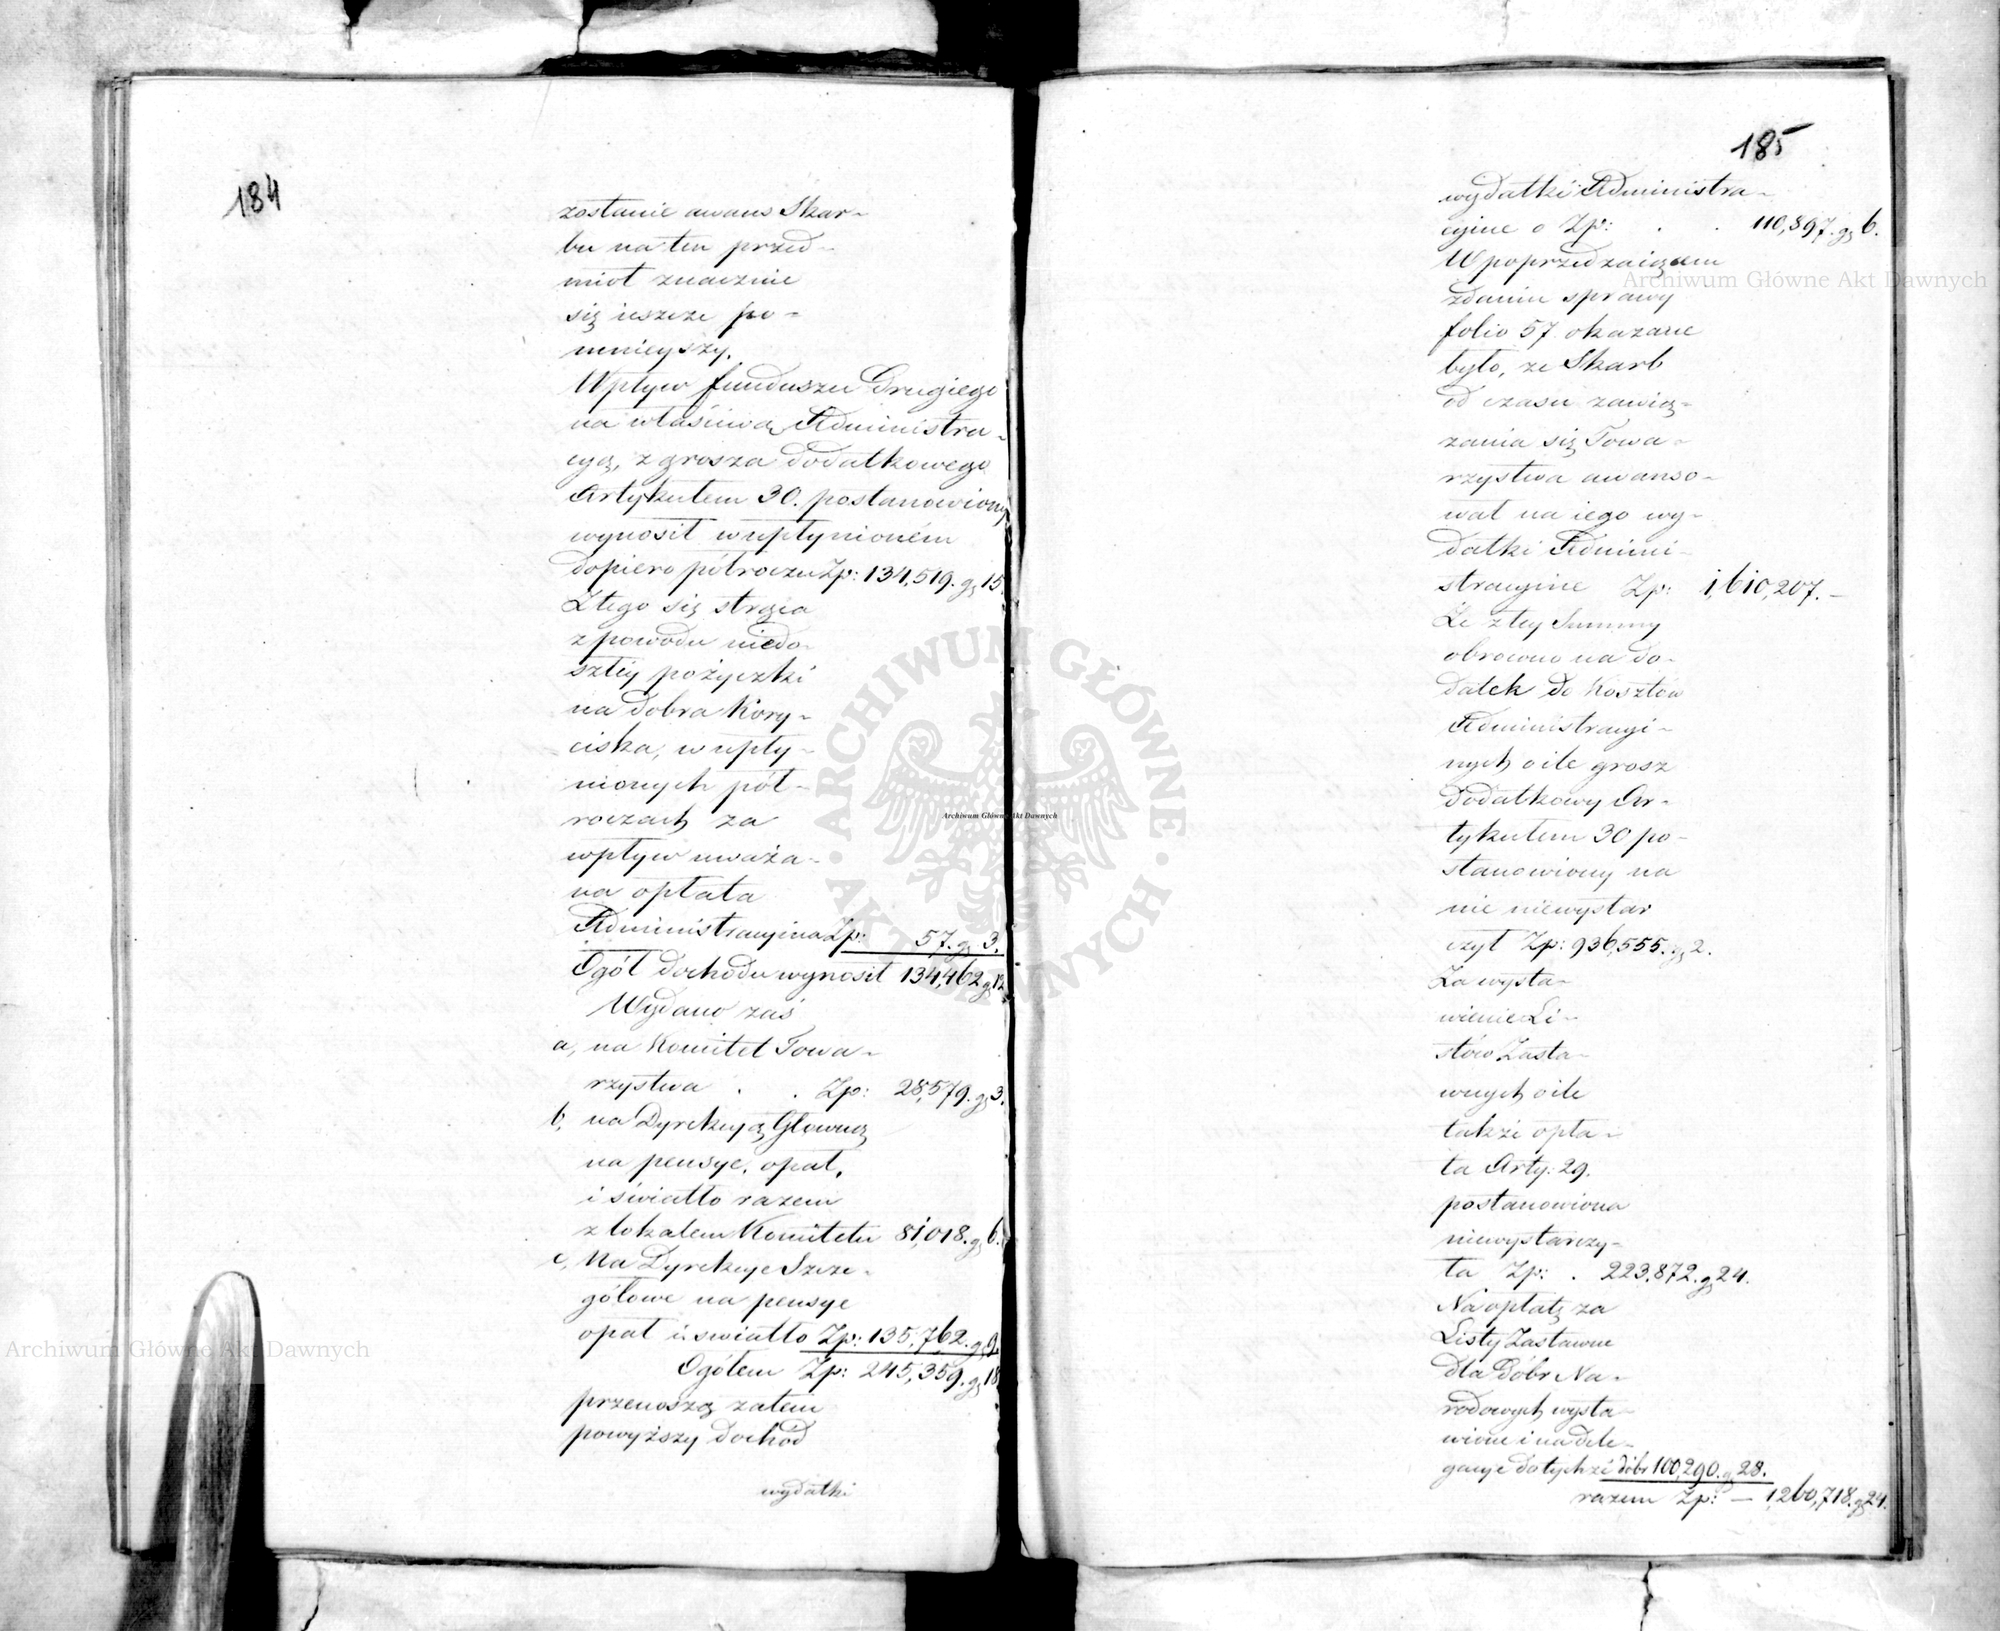 184
zostanie awans Skar-
bu na ten przed-
miot znacznie
się ieszcze po-
mnieyszy.
Wpływ funduszu Drugiego
na właściwą Administra-
cyą, z grosza dodatkowego
Artykułem 30. postanowiony
wynosił w upłynioném
dopiero półroczu Zp: 134,519. gr 15.
Z tego się strąca
z powodu niedo-
szłéy pożyczki
na dobra Kory-
ciska, w upły-
nionych pół-
roczach za
wpływ uważa-
na opłata
Administracyina Zp: 57. gr 3.
Ogół dochodu wynosił 134,462 gr 12
Wydano zaś
a, na Komitet Towa-
rzystwa . . Zp: 28,579. gr 3.
b, na Dyrekcyą Głowną
na pensye, opał,
i światło razem
z lokalem Komitetu 81,018. gr 6.
c, Na Dyrekcye Szcze-
gółowe na pensye
opał i światło Zp: 135,762. gr 9.
Ogółem Zp: 245,359. gr 18
przenoszą zatem
powyższy dochód
wydatki
185
wydatki Administra-
cyine o Zp: . . 110,897. gr 6.
W poprzedzaiącem
zdaniu sprawy
folio 57 okazane
było, że Skarb
od czasu zawią-
zania się Towa-
rzystwa awanso-
wał na iego wy-
datki Admini-
stracyine Zp: 1,610,207. —
Że z tey Summy
obrocono na do-
datek do Kosztów
Administracyi-
nych o ile grosz
dodatkowy Ar-
tykułem 30 po-
stanowiony na
nie niewystar
czył Zp: 936,555. gr 2.
Za wysta-
wienie Li-
stów Zasta-
wnych o ile
także opła-
ta Arty: 29.
postanowiona
niewystarczy-
ła Zp: . 223,872. gr 24.
Na opłatę za
Listy Zastawne
dla Dóbr Na-
rodowych wysta-
wione i na dele-
gacye do tychże dóbr 100,290. gr 28.
razem Zp: — 1,260,718. gr 24.
Archiwum Główne Akt Dawnych
Archiwum Główne Akt Dawnych
Archiwum Główne Akt Dawnych
· ARCHIWUM GŁÓWNE · AKT DAWNYCH